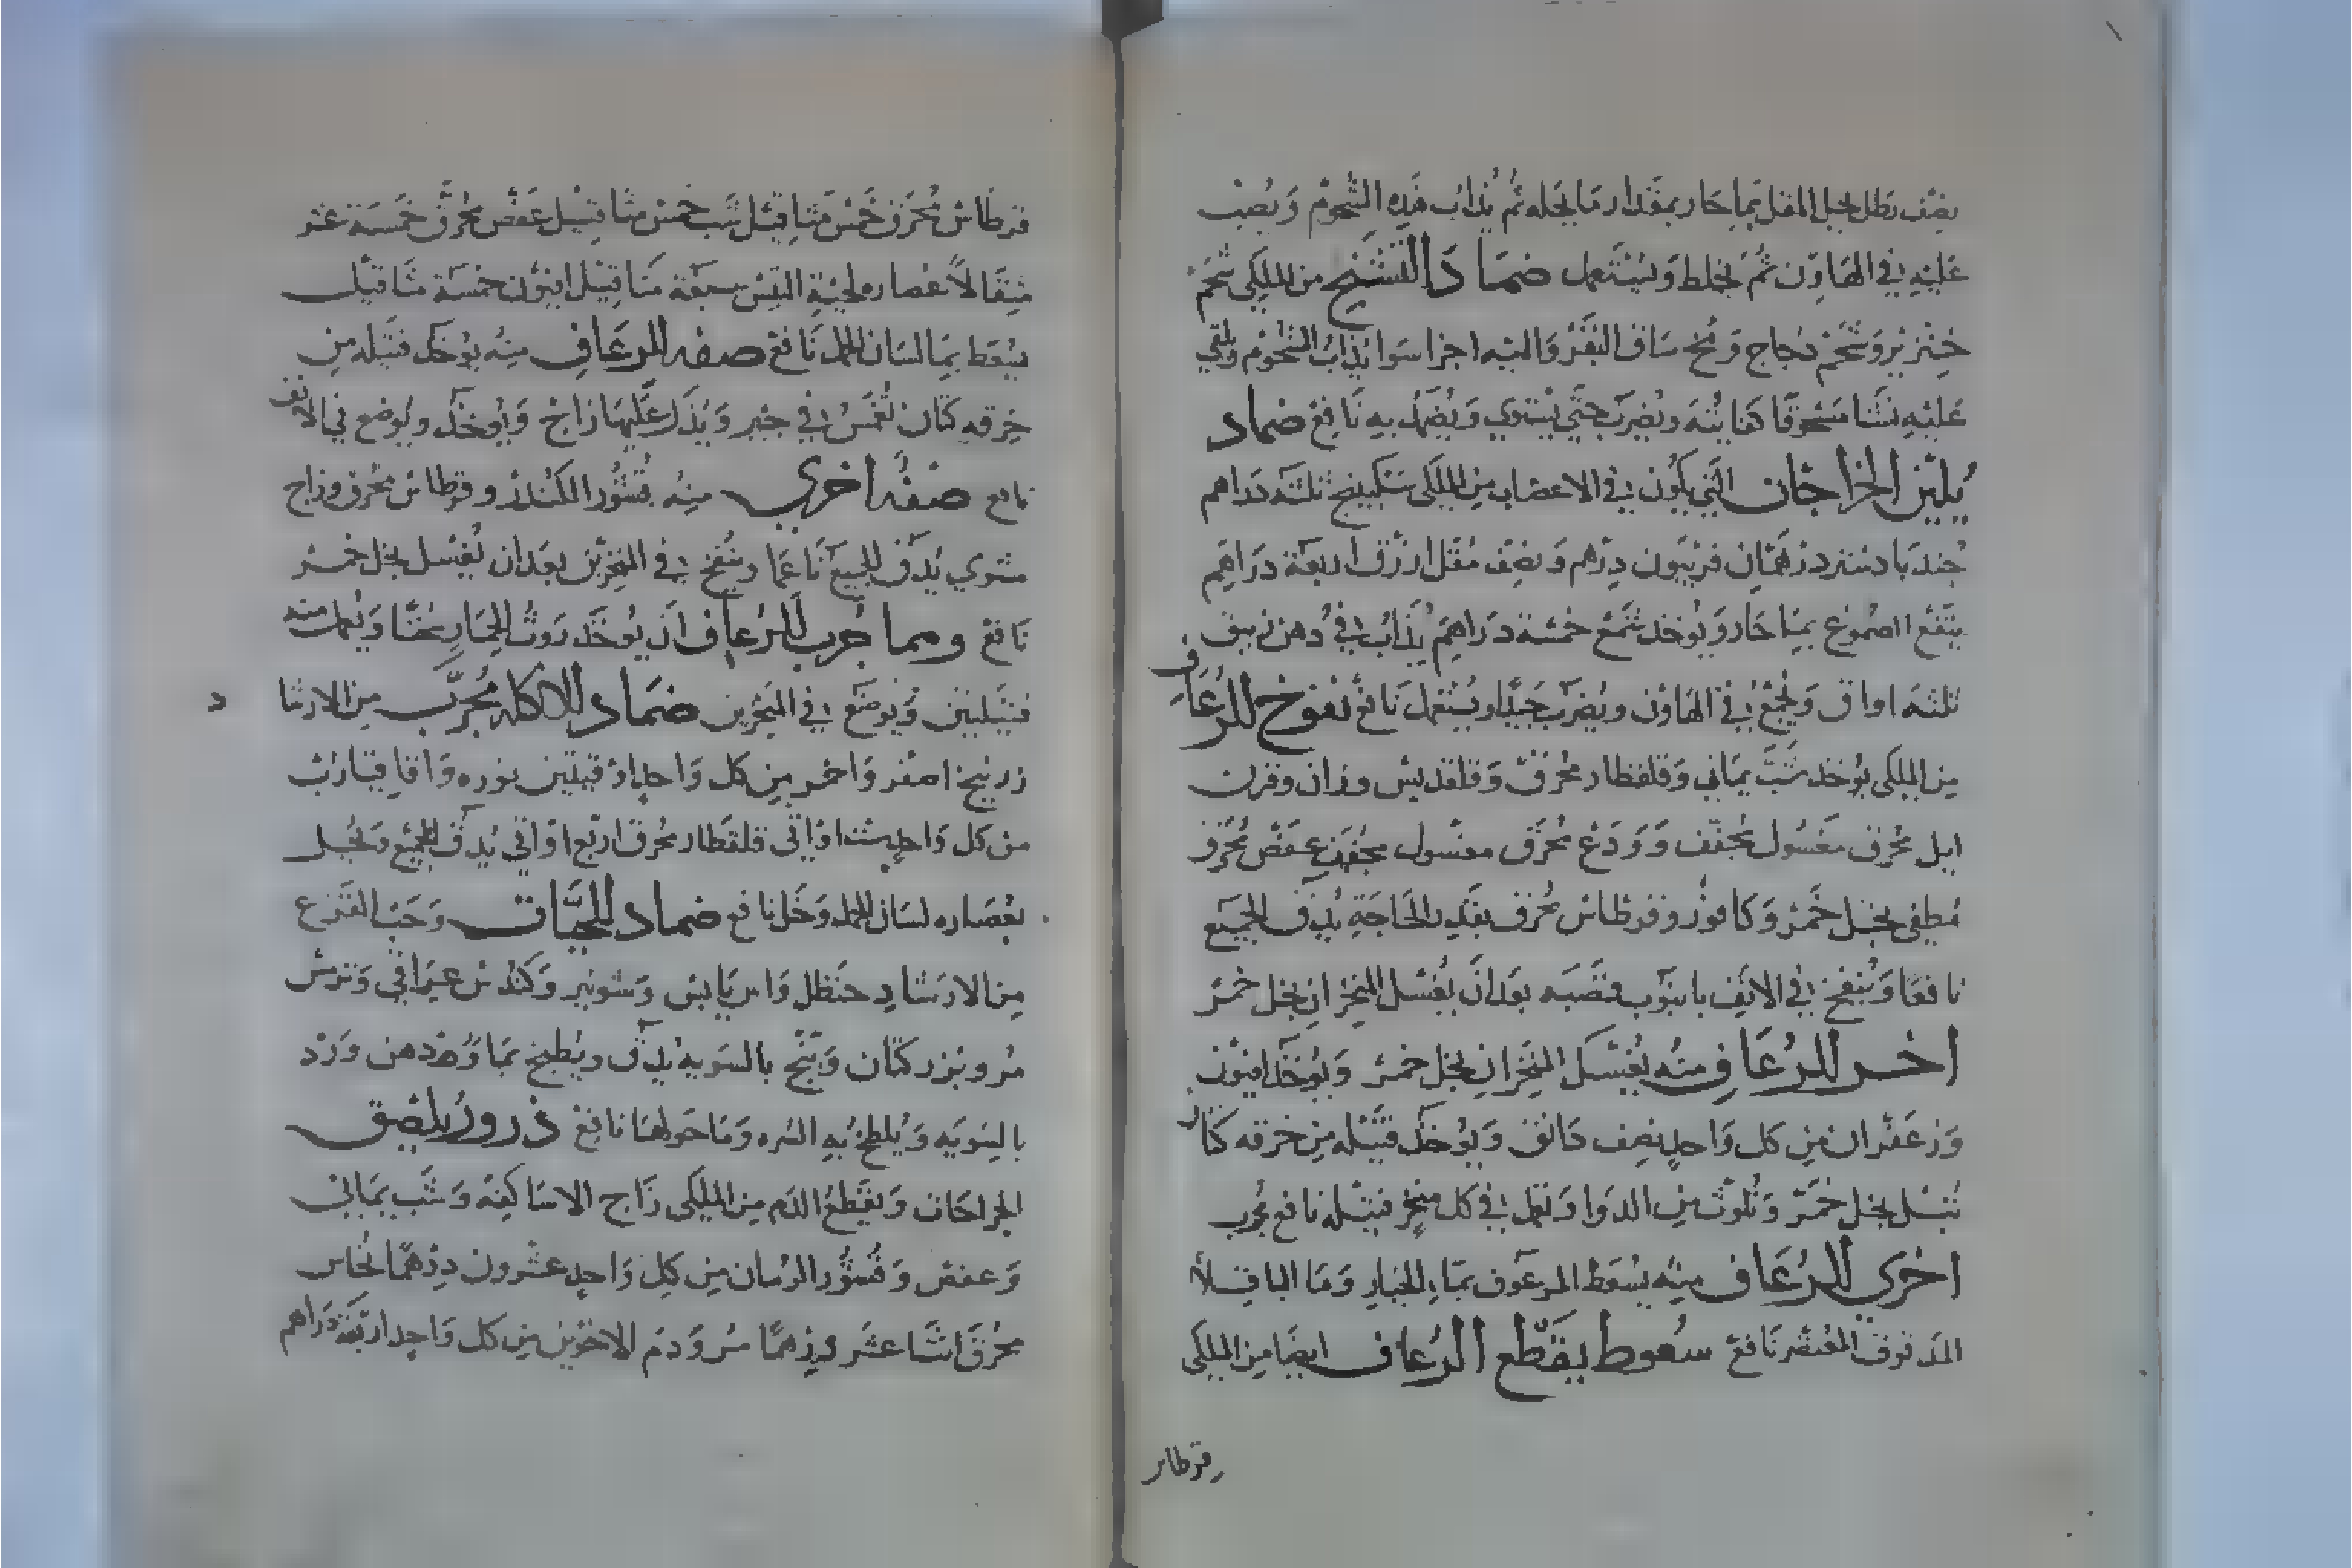 نصف رطل يحل المقل بماء حار بمقدار ما يحله ثم يذاب هذه الشحوم ويصب
عليه في الهاون ثم يخلط ويستعمل ضماد التشنج من الملكي شحم
خنزير وشحم دجاج ومخ ساق البقر والميه اجزا سوا يذاب الشحوم ويلقي
عليه نشا مسحوقا كفايته ويضرب حتى يستوي ويضمد به نافع ضماد
يلين الخراجات التي يكون في الاعصاب من الملكي سكبينج ثلثة دراهم
جندبادستر درهمان فربيون درهم ونصف مقل ازرق اربعة دراهم
ينقع الصموغ بماء حار ويوخذ شمع خمسة دراهم يذاب في دهن زيبق
ثلثه اواق ويجمع في الهاون ويضرب جيدا ويستعمل نافع نفوخ للرعاف
من الملكي يوخذ شب يماني وقلقطار محرق وقلقديس وزان وقرن
ايل محرق مغسول مجفف وودع محرق مغسول مجفف عفص محرق
مطفي بخل خمر وكافور وقرطاس محرق بقدر الحاجة يدق الجميع
ناعما وينفخ في الانف بانبوب قصبه بعد ان يغسل المنخران بخل خمر
اخر للرعاف منه يغسل المنخران بخل خمر ويوخذ افيون
وزعفران من كل واحد نصف دانق ويوخذ فتيله من خرقه كتان
تبل بخل خمر وتلوث من الدوا وتعمل في كل منخر فتيله نافع مجرب
اخرى للرعاف منه يسعط المرعوف بماء الخيار وما الباقلا
المدقوق المعتصر نافع سعوط يقطع الرعاف ايضا من الملكي
قرطاس
قرطاس محرق خمس مثاقيل شب خمس مثاقيل عفص محرق خمسة عشر
مثقالا عصاره لحية التيس سبعة مثاقيل افيون خمسة مثاقيل
يسعط بما لسان الحمل نافع صفه للرعاف منه يوخذ فتيله من
خرقه كتان تغمس في حبر ويذر عليها زاج ويوخذ ويوضع في الانف
نافع صفه اخرى منه قشور الكندر وقرطاس محرق وزاج
مشوي يدق الجميع ناعما وينفخ في المنخرين بعد ان يغسل بخل خمر
نافع ومما جرب للرعاف ان يوخذ روث الحمار سخنا ويعمل منه
فتيلتين ويوضع في المنخرين ضماد للاكله مجرب من الارشا
د
زرنيخ اصفر واحمر من كل واحد اوقيتين نوره واقاقيا راب
من كل واحد ست اواقي قلقطار محرق اربع اواقي يدق الجميع ويحل
بعصاره لسان الحمل وخل نافع ضماد للحيات وحب القرع
من الارشاد حنظل واس يابس وشونيز وكندس عراقي وترمس
مر وبزر كتان وبنج بالسويه يدق ويطبخ بماء ودهن ورد
بالسويه ويلطخ به السره وما حولها نافع ذرور يلصق
الجراحات ويقطع الدم من الملكي زاج الاساكفه وشب يماني
وعفص وقشور الرمان من كل واحد عشرون درهما نحاس
محرق اثنا عشر درهما مر ودم الاخوين من كل واحد اربعة دراهم